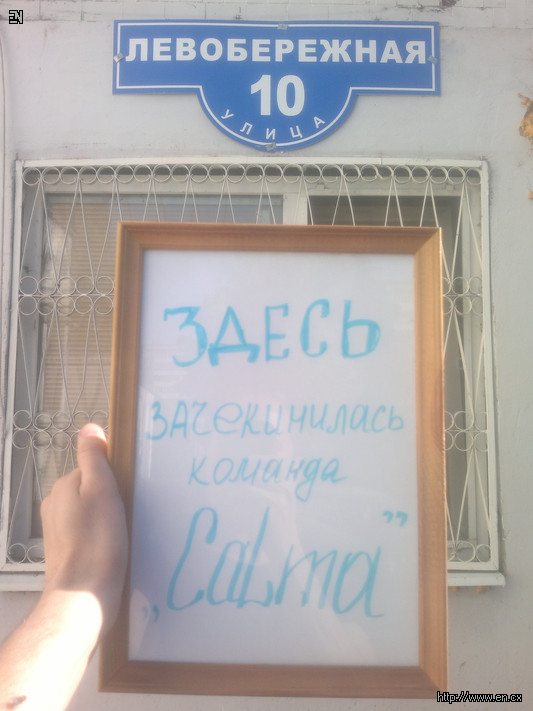 EN
ЛЕВОБЕРЕЖНАЯ
10
УЛИЦА
ЗДЕСЬ
ЗАЧЕКИНИЛАСЬ
команда
„CaLma”
http://www.en.cx